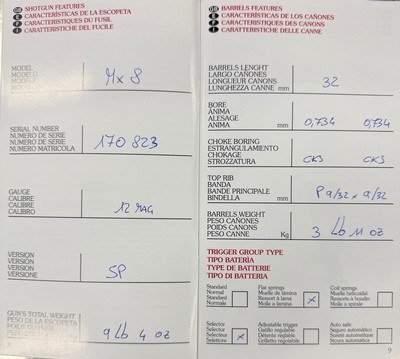 GB SHOTGUN FEATURES
E CARACTERÍSTICAS DE LA ESCOPETA
F CARACTERISTIQUES DU FUSIL
I CARATTERISTICHE DEL FUCILE
MODEL
MODELO
MODELE
MODELLO
Mx 8
SERIAL NUMBER
NUMERO DE SERIE
NUMERO DE SERIE
NUMERO MATRICOLA
170823
GAUGE
CALIBRE
CALIBRE
CALIBRO
12 MAG
VERSION
VERSIÓN
VERSION
VERSIONE
SP
GUN'S TOTAL WEIGHT
PESO DE LA ESCOPETA
POIDS DU FUSIL
9 Lb 4 oz
GB BARRELS FEATURES
E CARACTERÍSTICAS DE LOS CAÑONES
F CARACTERISTIQUES DES CANONS
I CARATTERISTICHE DELLE CANNE
BARRELS LENGHT
LARGO CAÑONES
LONGUEUR CANONS
LUNGHEZZA CANNE mm
32
BORE
ANIMA
ALESAGE
ANIMA mm
0,734 0,734
CHOKE BORING
ESTRANGULAMIENTO
CHOKAGE
STROZZATURA
CKS CKS
TOP RIB
BANDA
BANDE PRINCIPALE
BINDELLA mm
P 9/32 x 9/32
BARRELS WEIGHT
PESO CAÑONES
POIDS CANONS
PESO CANNE Kg
3 Lb 11 oz
TRIGGER GROUP TYPE
TIPO BATERÍA
TYPE DE BATTERIE
TIPO DI BATTERIA
Standard
Normal
Standard
Normale
Flat springs
Muelle de lamina
Ressort à lame
Molla a lamina
x
Coil springs
Muelle helicoidal
Ressorts à boudin
Molle a spirale
Selector
Selector
Sélecteur
Selettore
x
Adjustable trigger
Gatillo regulable
Détente réglable
Grilletto regolabile
Auto safe
Seguro automático
Sûreté automatique
Sicura automatica
9